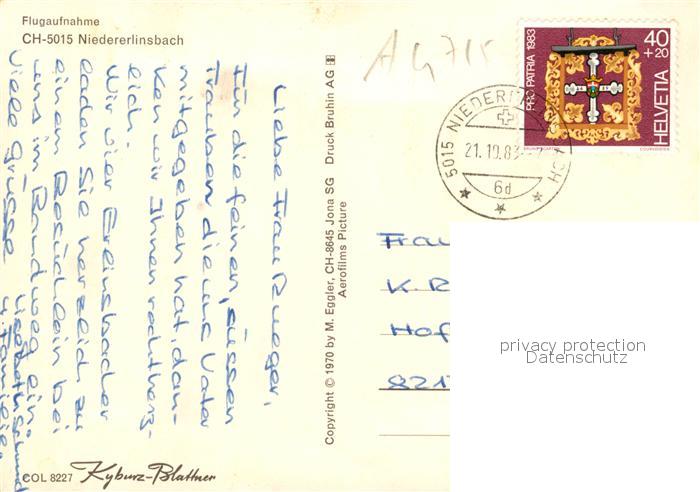 Flugaufnahme
CH-5015 Niedererlinsbach
Liebe Frau Rueger,
Für die feinen, süssen
Trauben die uns Vater
mitgegeben hat, dan-
ken wir Ihnen rechtherz-
lich.
Wir vier Erlinsbacher
laden Sie herzlich zu
einem Besüchlein bei
uns im Randweg ein.
Viele Grüsse
u. Familie.
COL 8227 Kyburz-Blattner
Copyright © 1970 by M. Eggler, CH-8645 Jona SG Druck Bruhin AG
Aerofilms Picture
A 4715
PRO PATRIA 1983
40
+20
HELVETIA
COURVOISIER
5015 NIEDER
21.10.83
6d
Frau
K. R
Hof
821
privacy protection
Datenschutz